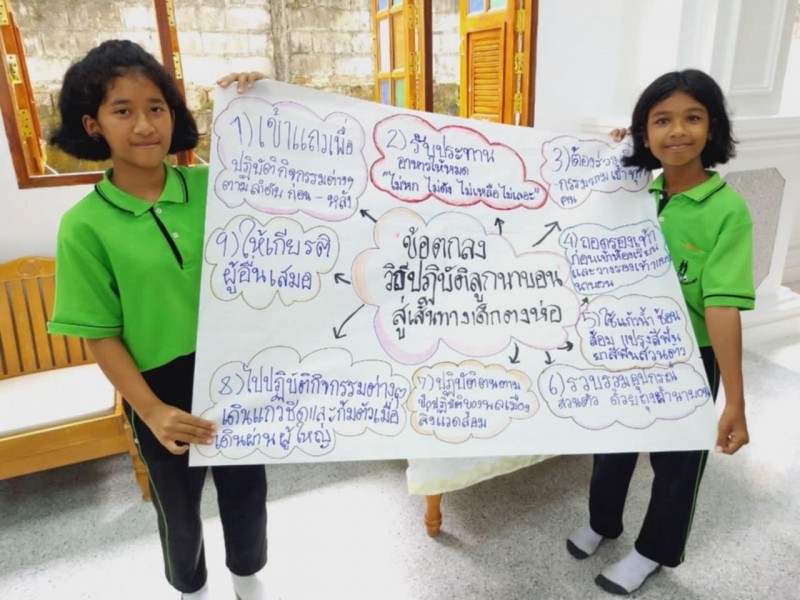 ข้อตกลง
วิถีปฏิบัติลูกนาบอน
สู่เส้นทางเด็กตงห่อ
1) เข้าแถวเพื่อ
ปฏิบัติกิจกรรมต่างๆ
ตามลำดับ ก่อน - หลัง
2) รับประทาน
อาหารให้หมด
"ไม่หก ไม่ดัง ไม่เหลือ ไม่เลอะ"
3) ต้อง
คน
4) ถอดรองเท้า
ก่อนเข้าห้องเรียน
และวางรองเท้า
5) ใช้แก้วน้ำ ช้อน
ส้อม แปรงสีฟัน
ยาสีฟันส่วนตัว
6) รวบรวมอุปกรณ์
ส่วนตัว ด้วยถุงผ้านาบอน
7) ปฏิบัติตนตาม
ข้อปฏิบัติของพลเมือง
สิ่งแวดล้อม
8) ไปปฏิบัติกิจกรรมต่างๆ
เดินแถวชิดและก้มตัวเมื่อ
เดินผ่านผู้ใหญ่
9) ให้เกียรติ
ผู้อื่นเสมอ